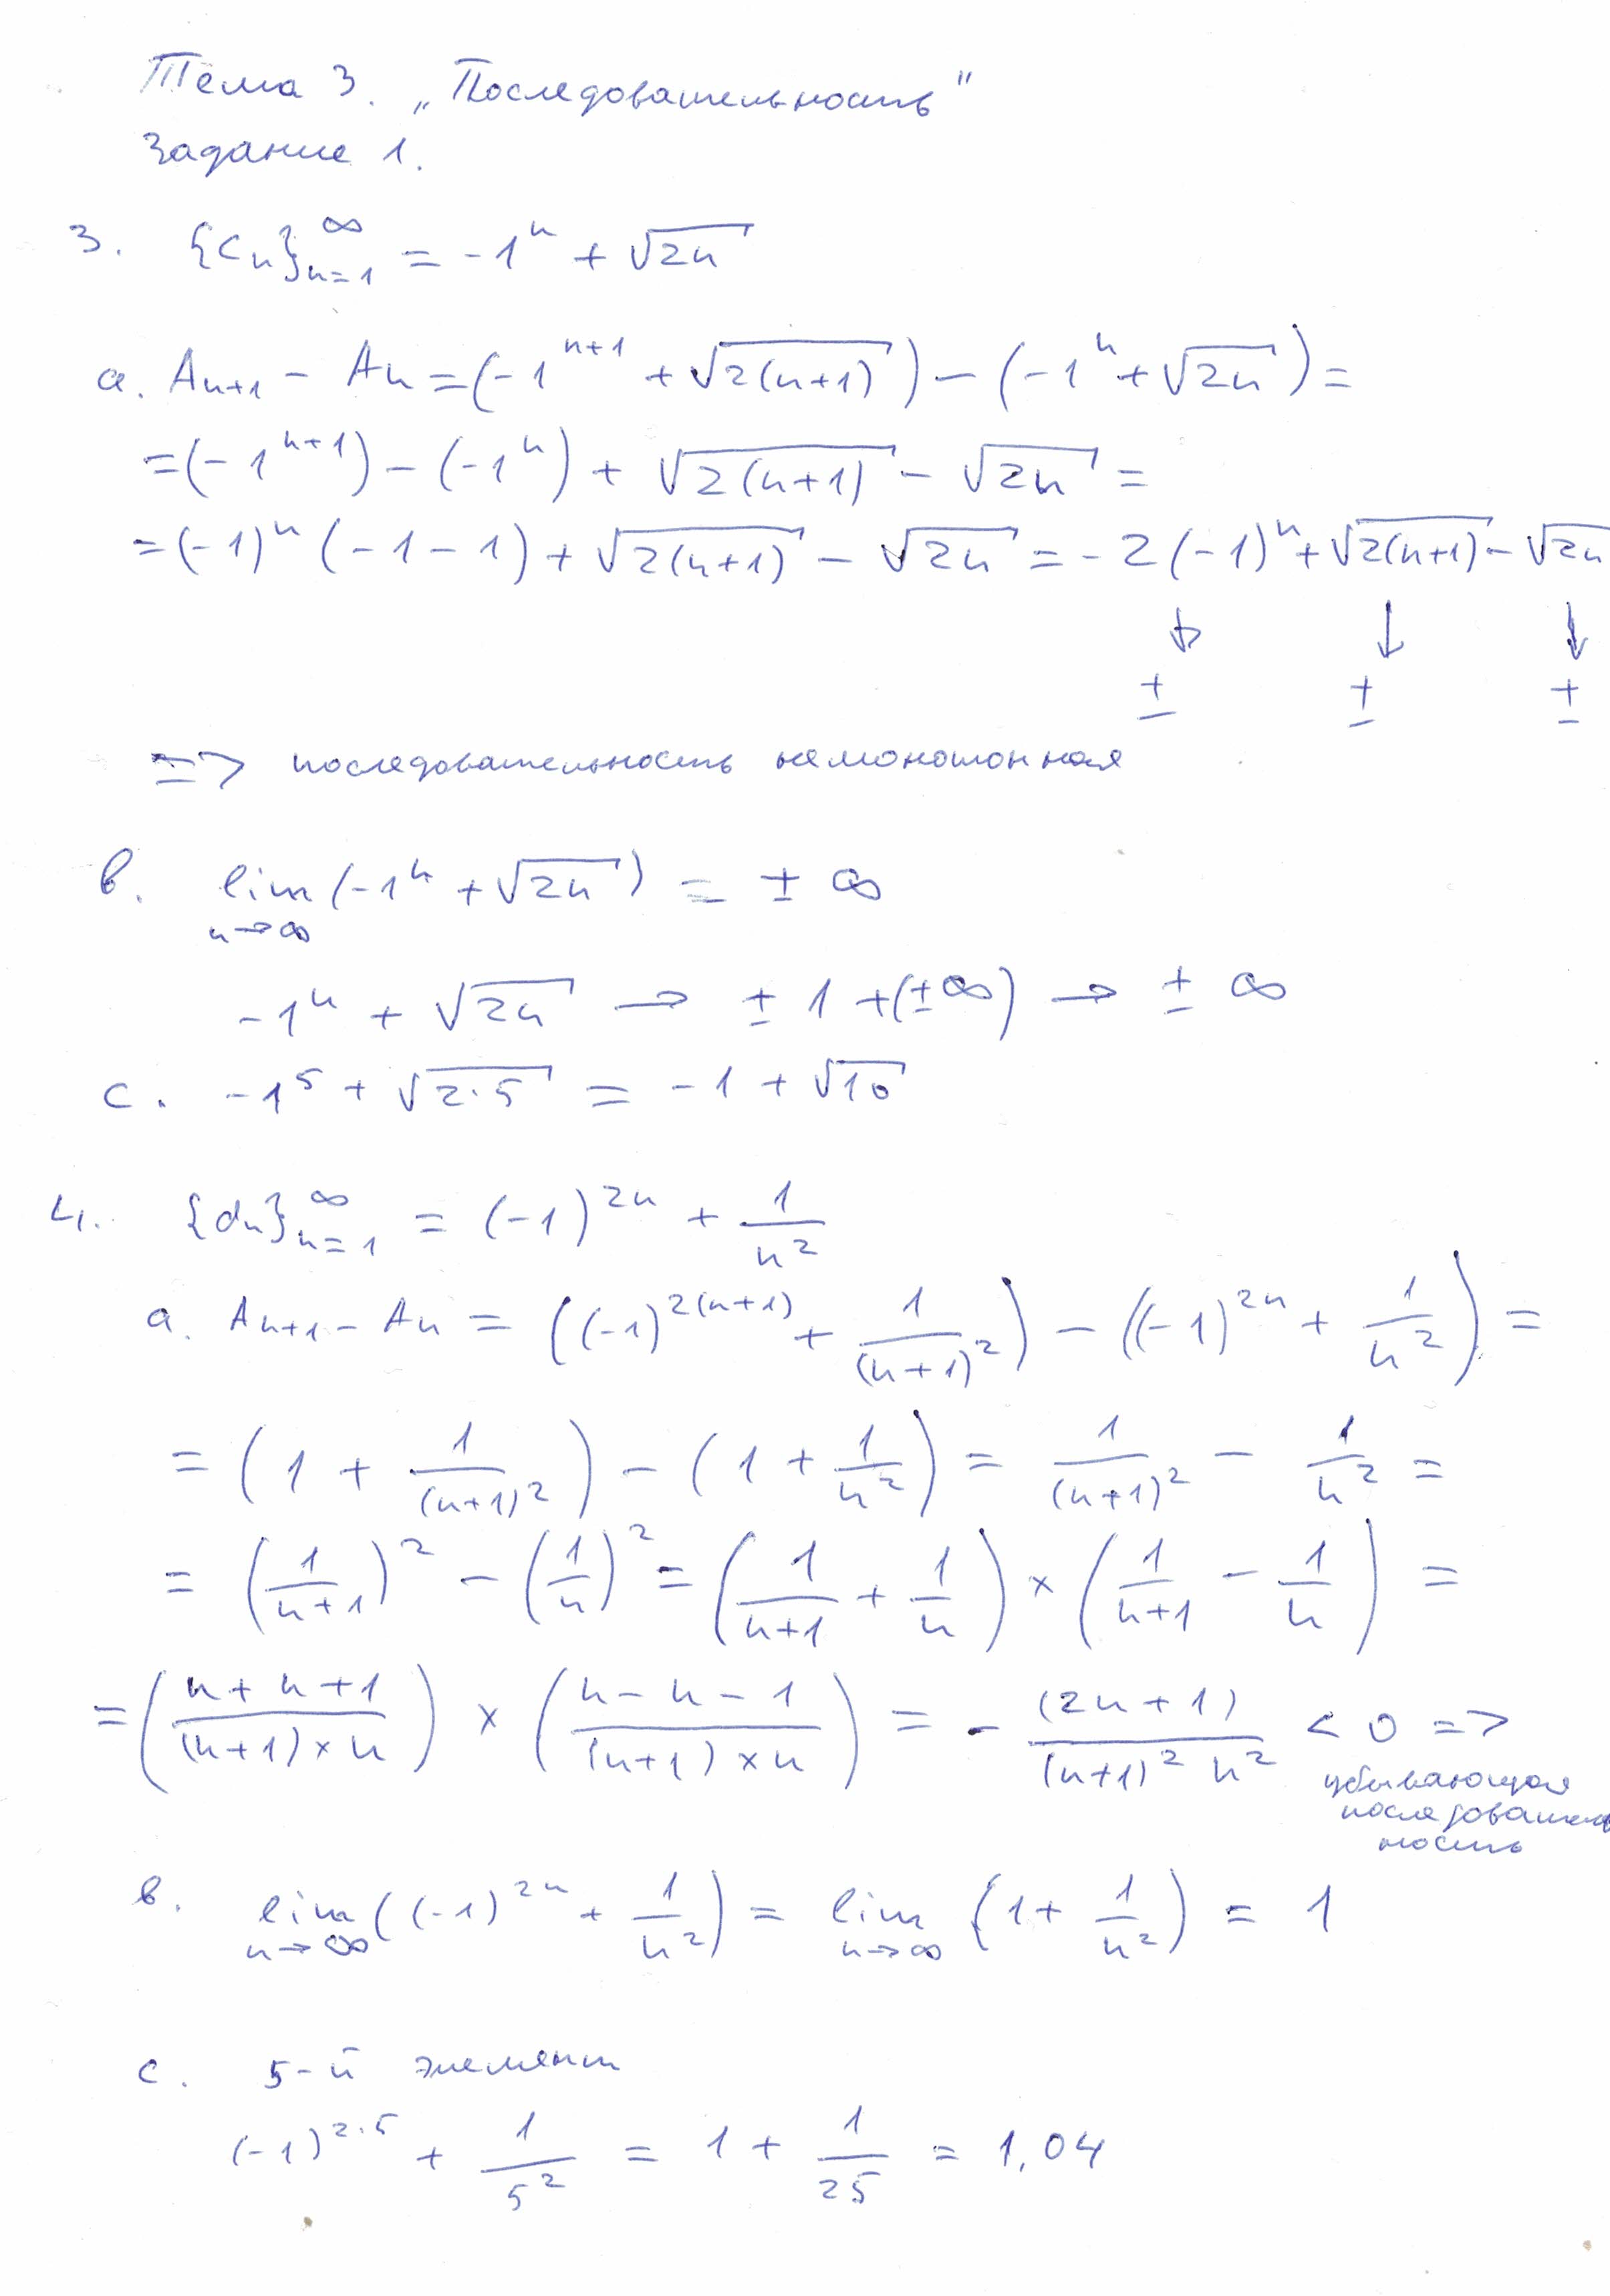 Тема 3. „Последовательность"
Задание 1.
3. {Cn}∞n=1 = -1ⁿ + √2n
a. An+1 - An = (-1ⁿ⁺¹ + √2(n+1)) - (-1ⁿ + √2n) =
= (-1ⁿ⁺¹) - (-1ⁿ) + √2(n+1) - √2n =
= (-1)ⁿ (-1-1) + √2(n+1) - √2n = -2(-1)ⁿ + √2(n+1) - √2n
↓ ↓ ↓
± ± ±
=> последовательность немонотонная
в. lim (-1ⁿ + √2n) = ± ∞
n→∞
-1ⁿ + √2n → ± 1 + (±∞) → ± ∞
c. -1⁵ + √2·5 = -1 + √10
4. {dn}∞n=1 = (-1)²ⁿ + 1/n²
a. An+1 - An = ((-1)²⁽ⁿ⁺¹⁾ + 1/(n+1)²) - ((-1)²ⁿ + 1/n²) =
= (1 + 1/(n+1)²) - (1 + 1/n²) = 1/(n+1)² - 1/n² =
= (1/(n+1))² - (1/n)² = (1/(n+1) + 1/n) × (1/(n+1) - 1/n) =
= ((n+n+1)/((n+1)×n)) × ((n-n-1)/((n+1)×n)) = - (2n+1)/((n+1)² n²) < 0 =>
убывающая
последователь
ность
в. lim ((-1)²ⁿ + 1/n²) = lim (1 + 1/n²) = 1
n→∞ n→∞
c. 5-й элемент
(-1)²·⁵ + 1/5² = 1 + 1/25 = 1,04